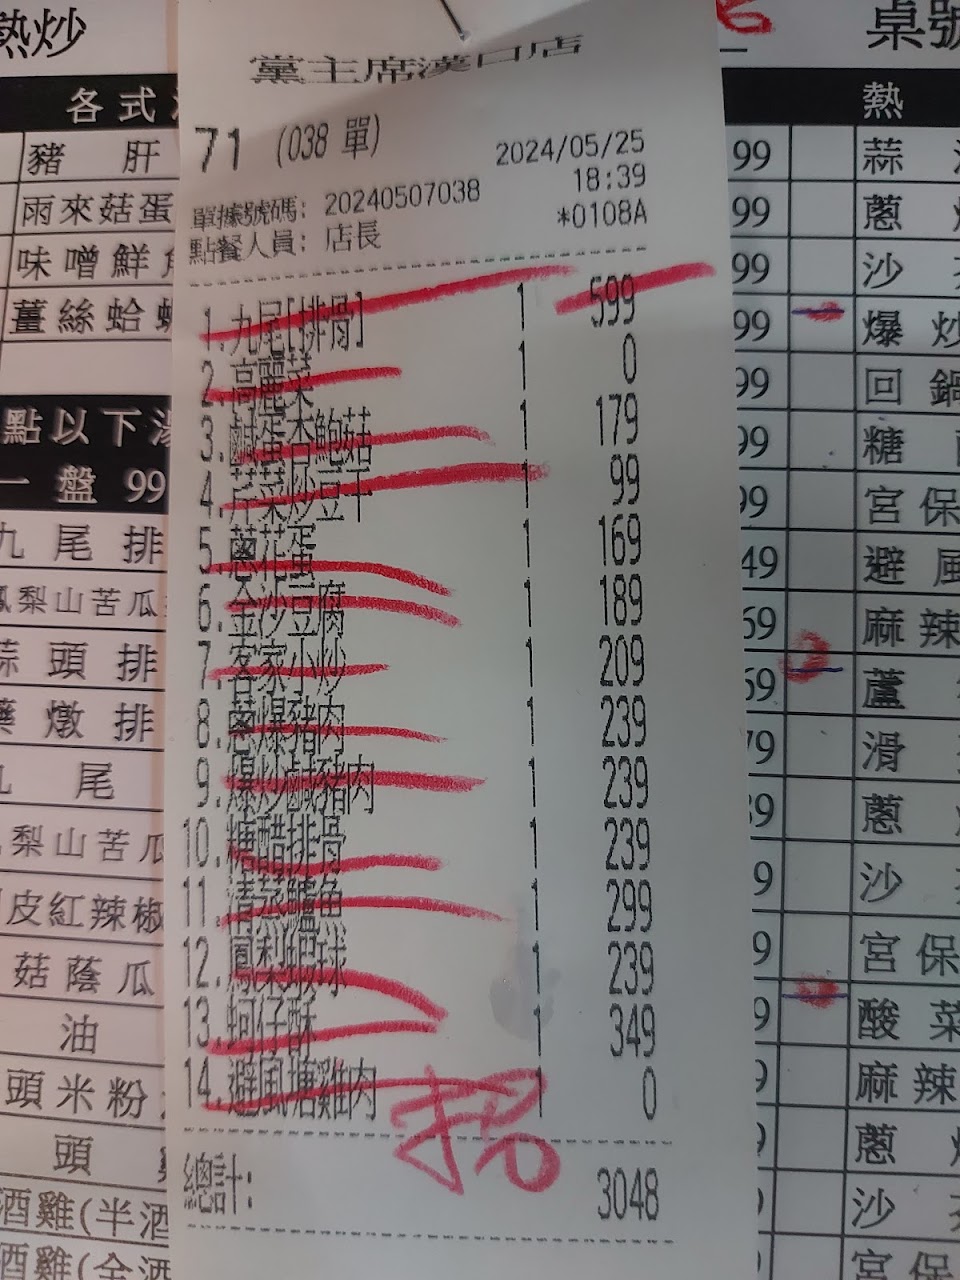 熱炒
各式
豬肝
雨來菇蛋
味噌鮮
薑絲蛤
點以下
一盤 99
九尾排
梨山苦瓜
蒜頭排
藥燉排
九尾
梨山苦瓜
皮紅辣椒
菇蔭瓜
油
頭米粉
頭
酒雞(半酒
酒雞(全酒
黨主席漢口店
71 (038 單)
2024/05/25
18:39
單據號碼: 20240507038
*0108A
點餐人員: 店長
1.九尾[排骨] 1 599
2.高麗菜 1 0
3.鹹蛋杏鮑菇 1 179
4.芹菜炒豆干 1 99
5.蔥花蛋 1 169
6.金沙豆腐 1 189
7.客家小炒 1 209
8.蔥爆豬肉 1 239
9.爆炒鹹豬肉 1 239
10.糖醋排骨 1 239
11.清蒸鱸魚 1 299
12.鳳梨蝦球 1 239
13.蚵仔酥 1 349
14.避風塘雞肉 1 0
招
總計: 3048
桌號
熱
99 蒜
99 蔥
99 沙
99 爆炒
99 回鍋
99 糖
99 宮保
49 避風
69 麻辣
69 蘆
79 滑
89 蔥
9 沙
9 宮保
9 酸菜
9 麻辣
9 蔥
沙
宮保